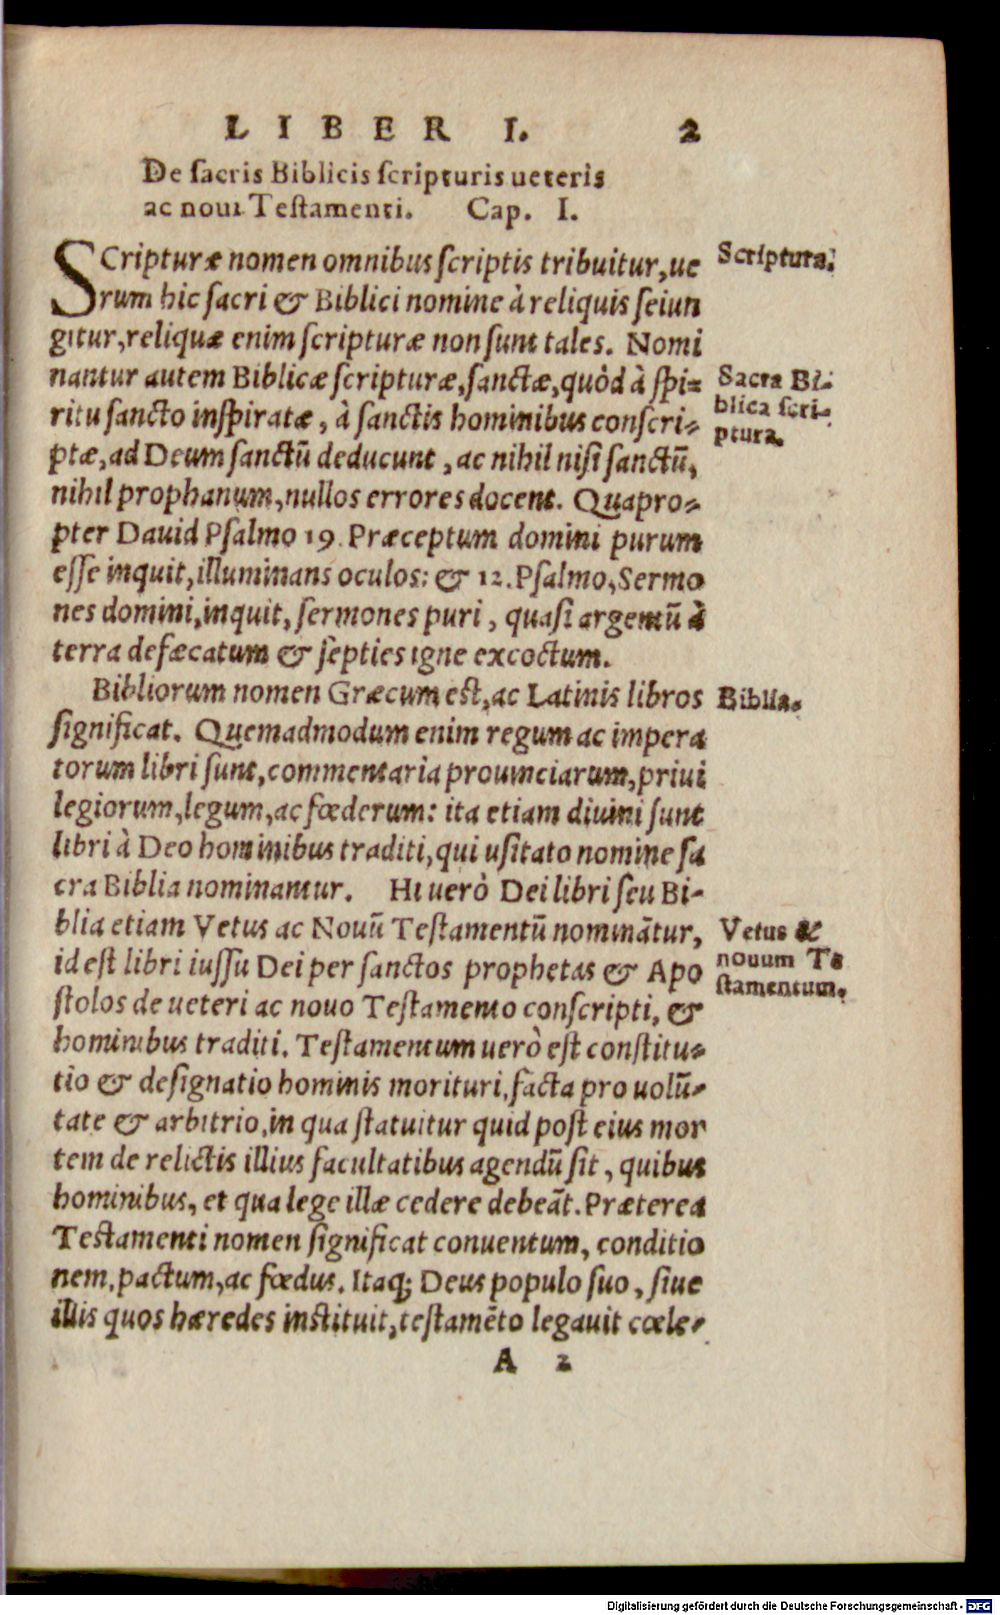 LIBER I. 2
De sacris Biblicis scripturis ueteris
ac noui Testamenti. Cap. I.
SCripturæ nomen omnibus scriptis tribuitur, ue
rum hic sacri & Biblici nomine à reliquis seiun
gitur, reliquæ enim scripturæ non sunt tales. Nomi
nantur autem Biblicæ scripturæ, sanctæ, quòd à spi-
ritu sancto inspiratæ, à sanctis hominibus conscri-
ptæ, ad Deum sanctū deducunt, ac nihil nisi sanctū,
nihil prophanum, nullos errores docent. Quapro-
pter Dauid Psalmo 19. Præceptum domini purum
esse inquit, illuminans oculos: & 12. Psalmo, Sermo
nes domini, inquit, sermones puri, quasi argentū à
terra defæcatum & septies igne excoctum.
Bibliorum nomen Græcum est, ac Latinis libros
significat. Quemadmodum enim regum ac impera
torum libri sunt, commentaria prouinciarum, priui
legiorum, legum, ac fœderum: ita etiam diuini sunt
libri à Deo hominibus traditi, qui usitato nomine sa
cra Biblia nominantur. Hi uerò Dei libri seu Bi-
blia etiam Vetus ac Nouū Testamentū nominātur,
id est libri iussu Dei per sanctos prophetas & Apo
stolos de ueteri ac nouo Testamento conscripti, &
hominibus traditi. Testamentum uerò est constitu-
tio & designatio hominis morituri, facta pro uolū-
tate & arbitrio, in qua statuitur quid post eius mor
tem de relictis illius facultatibus agendū sit, quibus
hominibus, et qua lege illæ cedere debeāt. Præterea
Testamenti nomen significat conuentum, conditio
nem, pactum, ac fœdus. Itaq; Deus populo suo, siue
illis quos hæredes instituit, testamēto legauit cœle-
A 2
Scriptura.
Sacra Bi-
blica scri-
ptura.
Biblia.
Vetus &
nouum Te
stamentum.
Digitalisierung gefördert durch die Deutsche Forschungsgemeinschaft - DFG